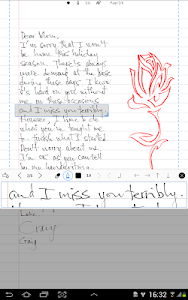 Dear Mom,
I'm sorry that I won't
be home this holiday
season. There's always
more demand at the base
during these days. I know
it's hard on you without
me on these occasions
and I miss you terribly.
However, I have to do
what you've taught me
to: finish what I started
Don't worry about me.
I'm OK as you can tell
by my handwriting.
and I miss you terribly.
Love,
Gary
16:32